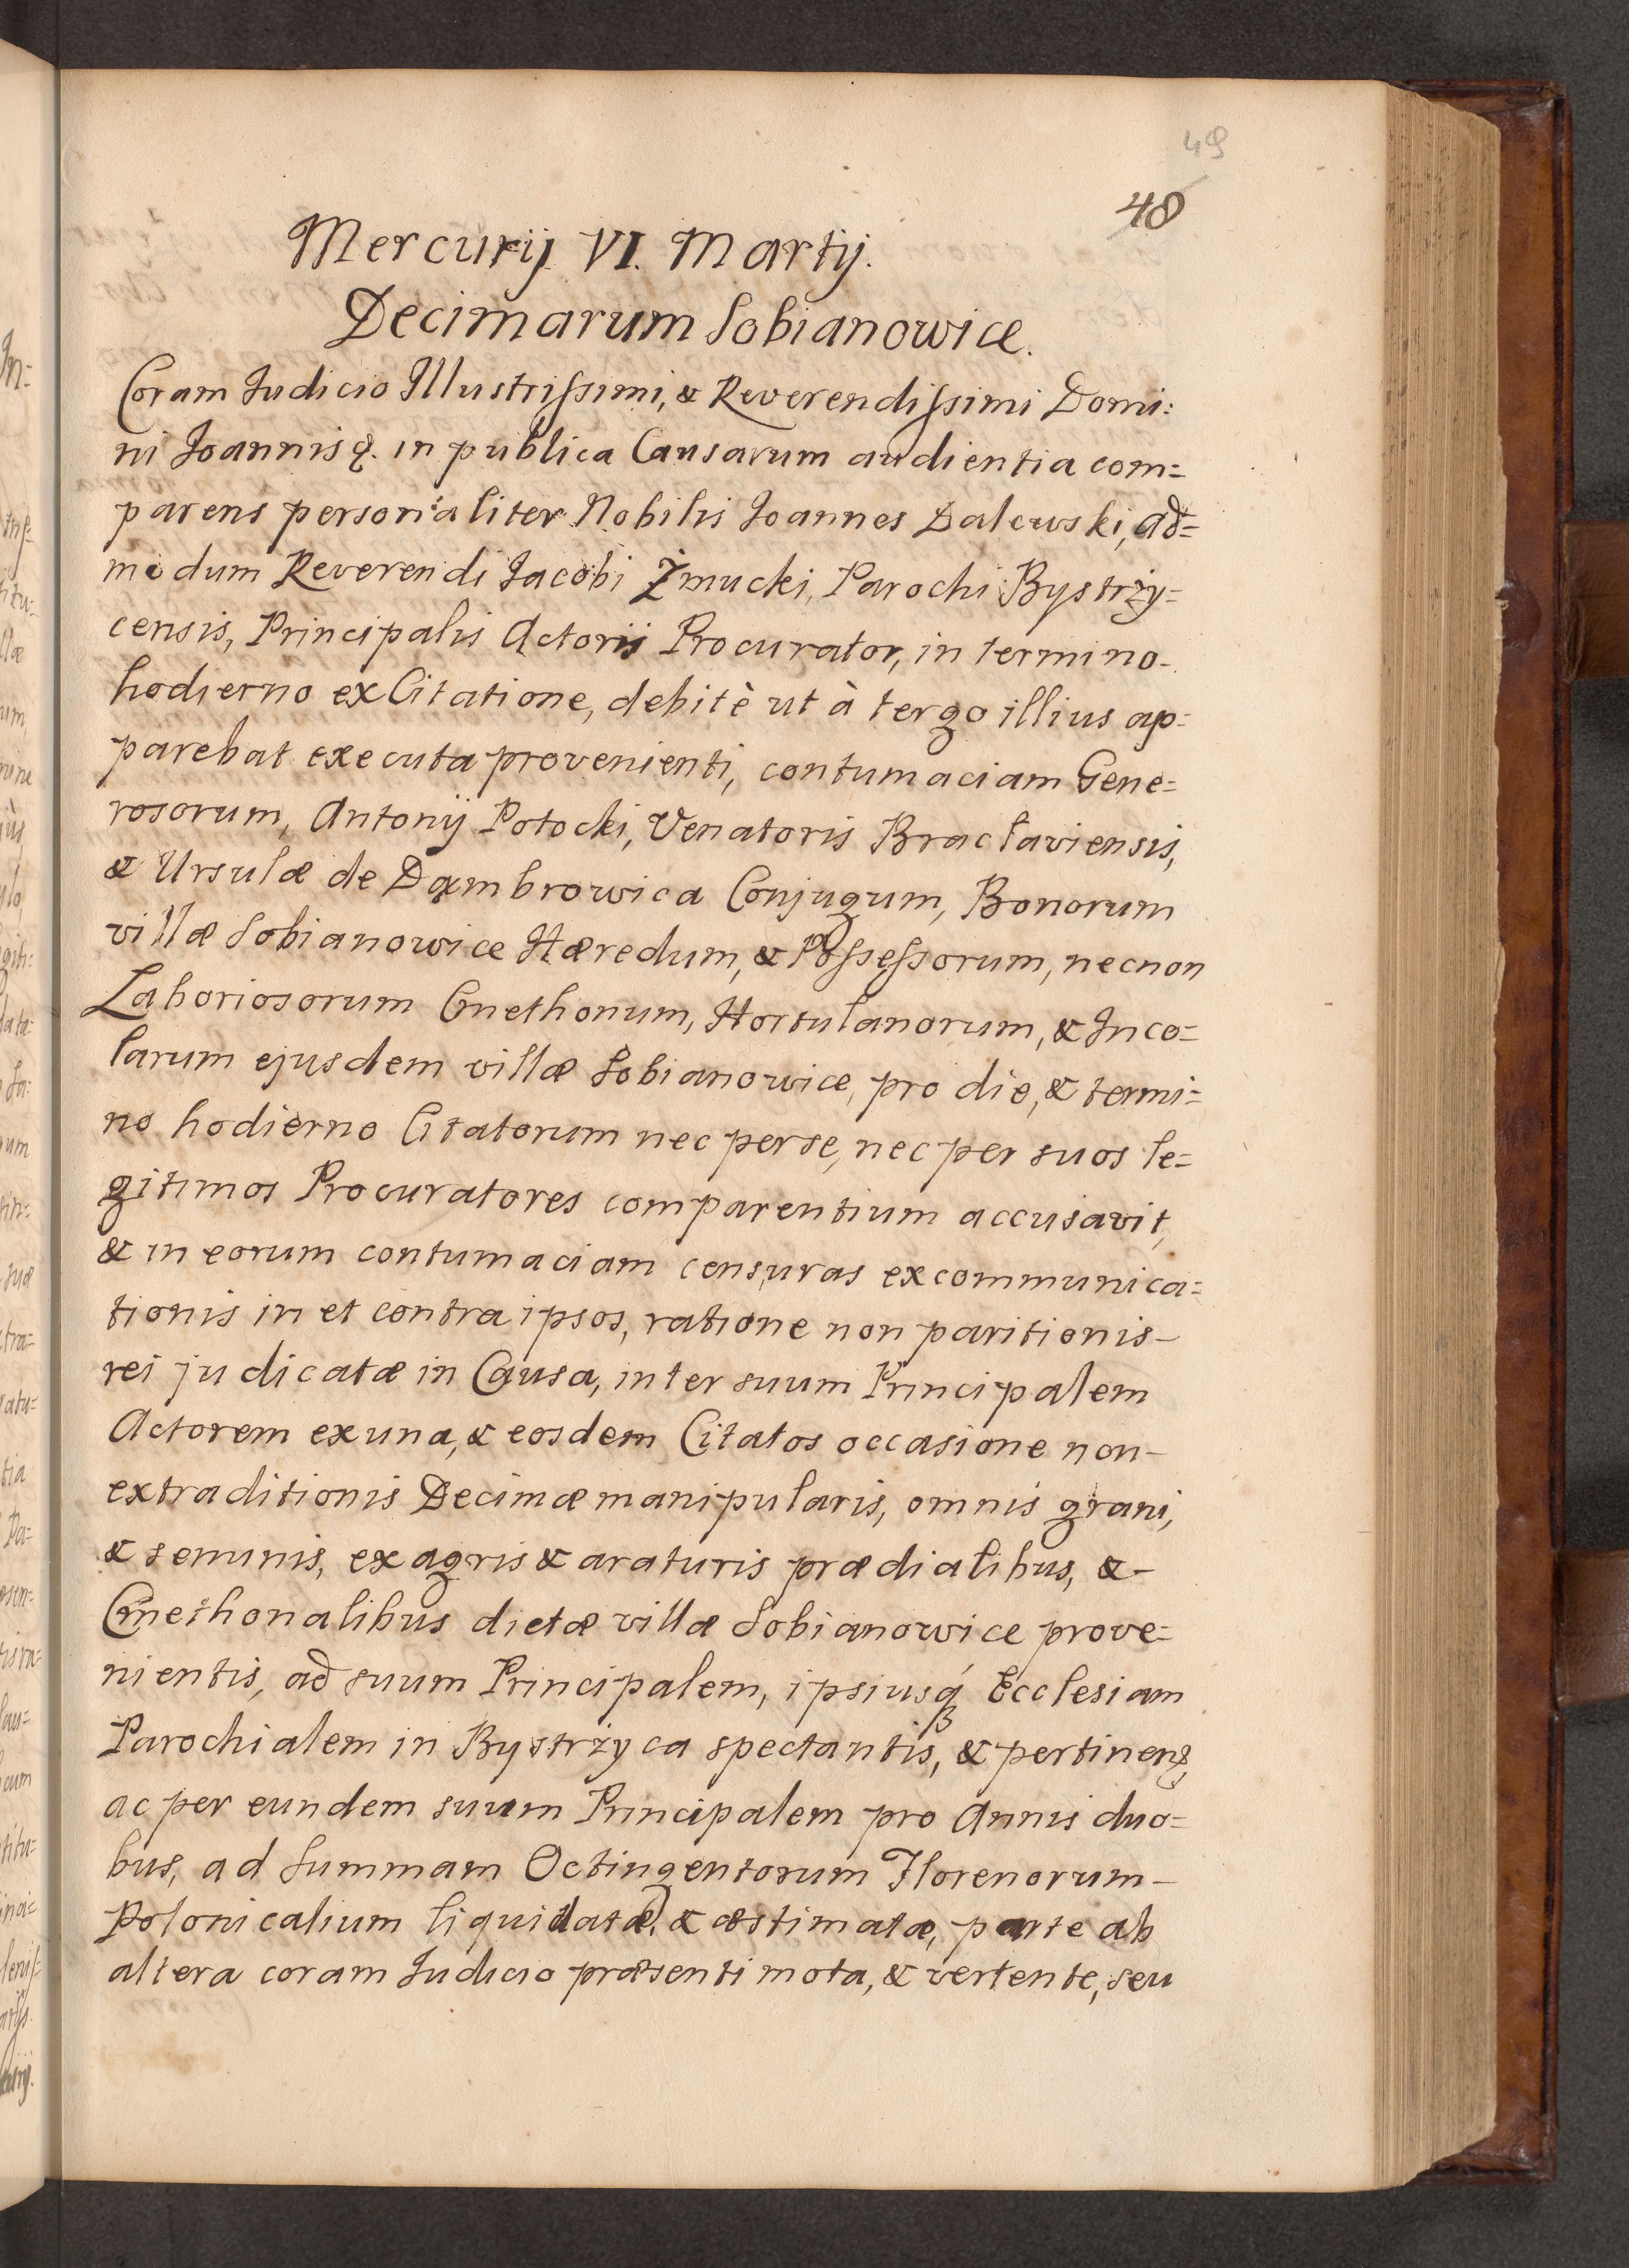 49
48
Mercurij VI. Martij.
Decimarum Sobianowice.
Coram Iudicio Illustrissimi, & Reverendissimi Domi:
ni Ioannis &. in publica Causarum audientia com=
parens personaliter Nobilis Ioannes Dalewski, ad=
modum Reverendi Iacobi Żmucki, Parochi Bystrzy=
censis, Principalis Actoris Procurator, in termino-
hodierno ex Citatione, debitè ut à tergo illius ap=
parebat executa provenienti, contumaciam Gene=
rosorum, Antonij Potocki, Venatoris Braclaviensis,
& Ursulæ de Dąmbrowica Conjugum, Bonorum
villæ Sobianowice Hæredum, & Possessorum, necnon
Laboriosorum Cmethonum, Hortulanorum, & Inco=
larum ejusdem villæ Sobianowice, pro die, & termi=
no hodierno Citatorum nec per se, nec per suos le=
gitimos Procuratores comparentium accusavit,
& in eorum contumaciam censuras excommunica=
tionis in et contra ipsos, ratione non paritionis-
rei judicatæ in Causa, inter suum Principalem
Actorem ex una, & eosdem Citatos occasione non-
extraditionis Decimæ manipularis, omnis grani,
& seminis, ex agris & araturis prædialibus, &-
Cmethonalibus dictæ villæ Sobianowice prove=
nientis, ad suum Principalem, ipsiusq́ Ecclesiam
Parochialem in Bystrzyca spectantis, & pertinens
ac per eundem suum Principalem pro Annis duo=
bus, ad Summam Octingentorum Florenorum-
Polonicalium liquidatæ, & æstimatæ, parte ab
altera coram Iudicio præsenti mota, & vertente, seu